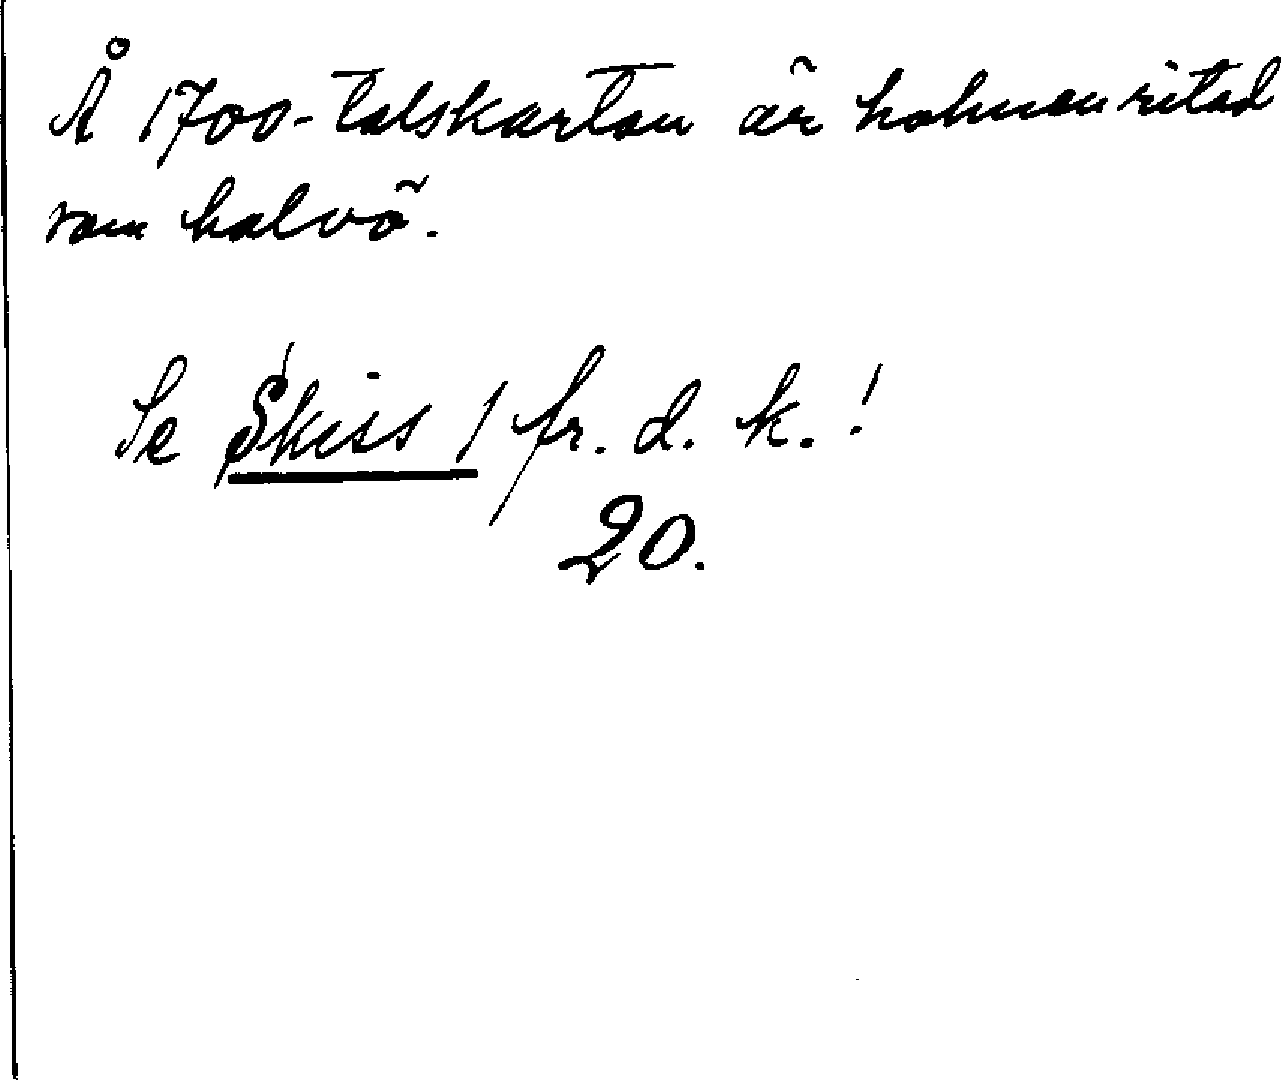 Å 1700-talskartan är holmen ritad
som halvö.
Se Skiss 1 fr. d. k.!
20.